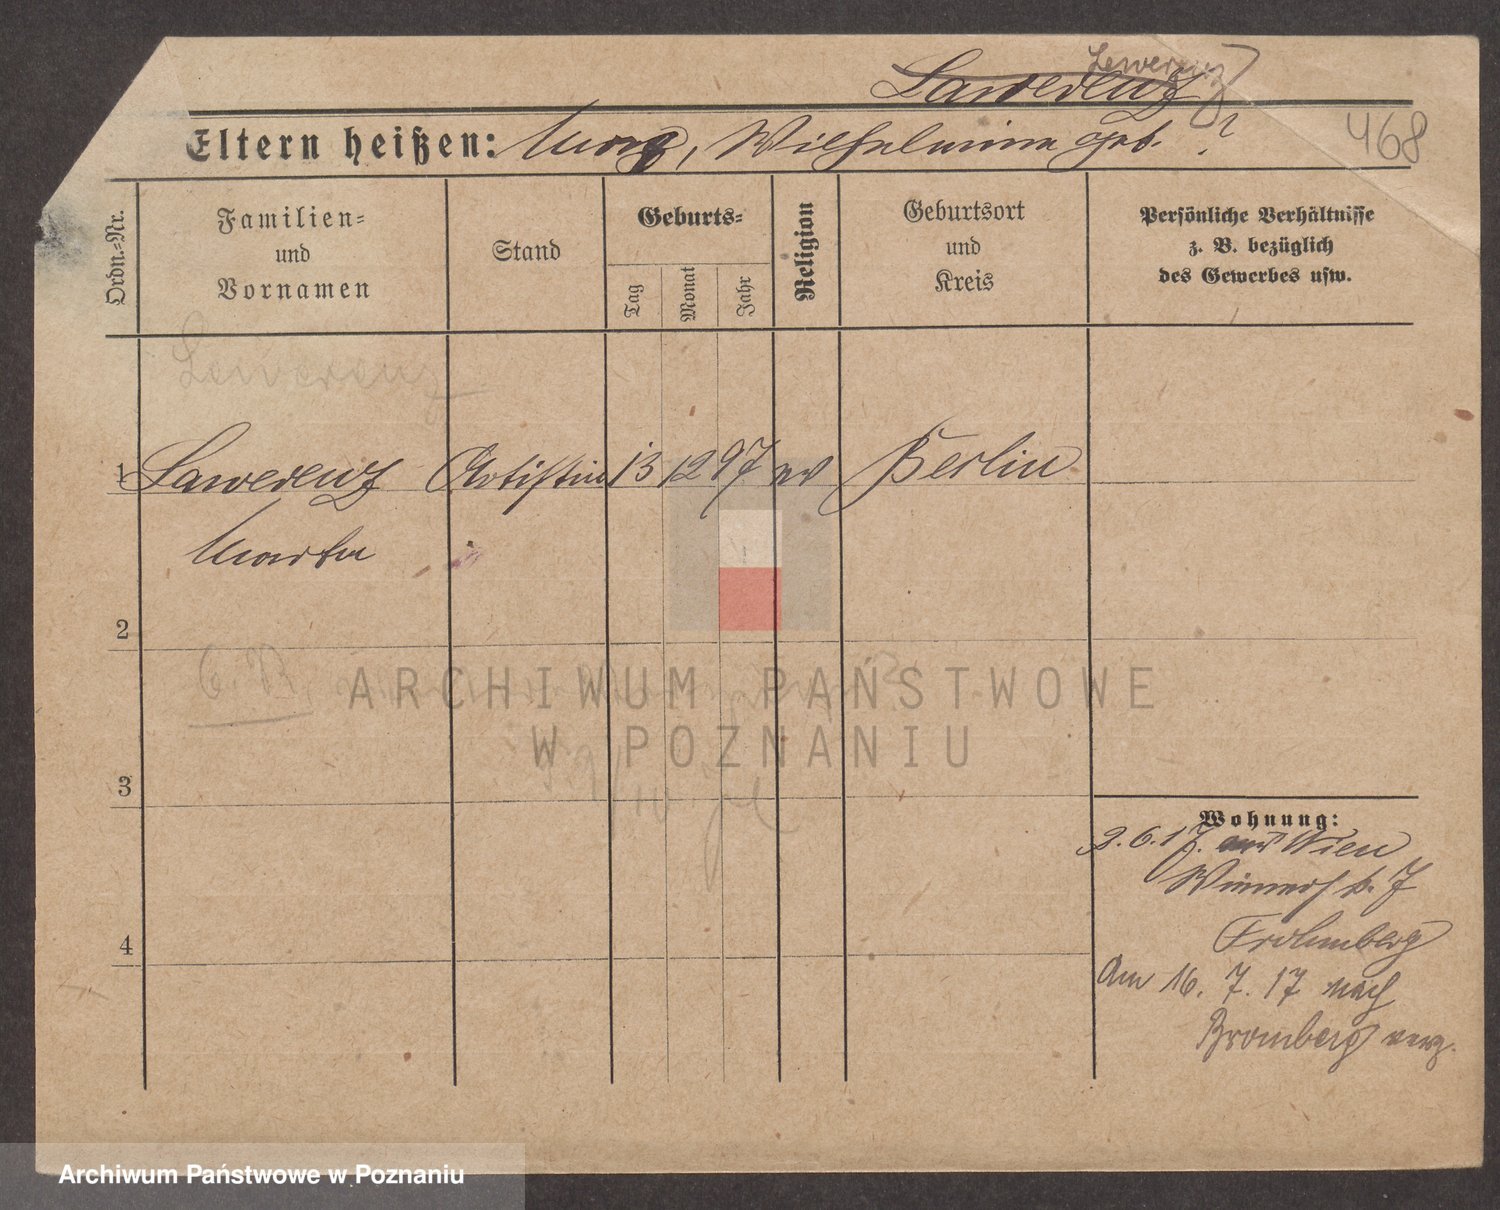 Lewerenz
Lawerenz
Eltern heißen: Max, Wilhelmine geb. ?
468
Ordn.-Nr.
Familien-
und
Vornamen
Stand
Geburts-
Tag
Monat
Jahr
Religion
Geburtsort
und
Kreis
Persönliche Verhältnisse
z. B. bezüglich
des Gewerbes usw.
Lewerenz
1 Lawerenz Artistin 13 12 97 ev Berlin
Martha
2
3
4
Wohnung:
2.6.17. aus Wien
7
Am 16. 7. 17 nach
Bromberg verz.
ARCHIWUM PAŃSTWOWE
W POZNANIU
Archiwum Państwowe w Poznaniu